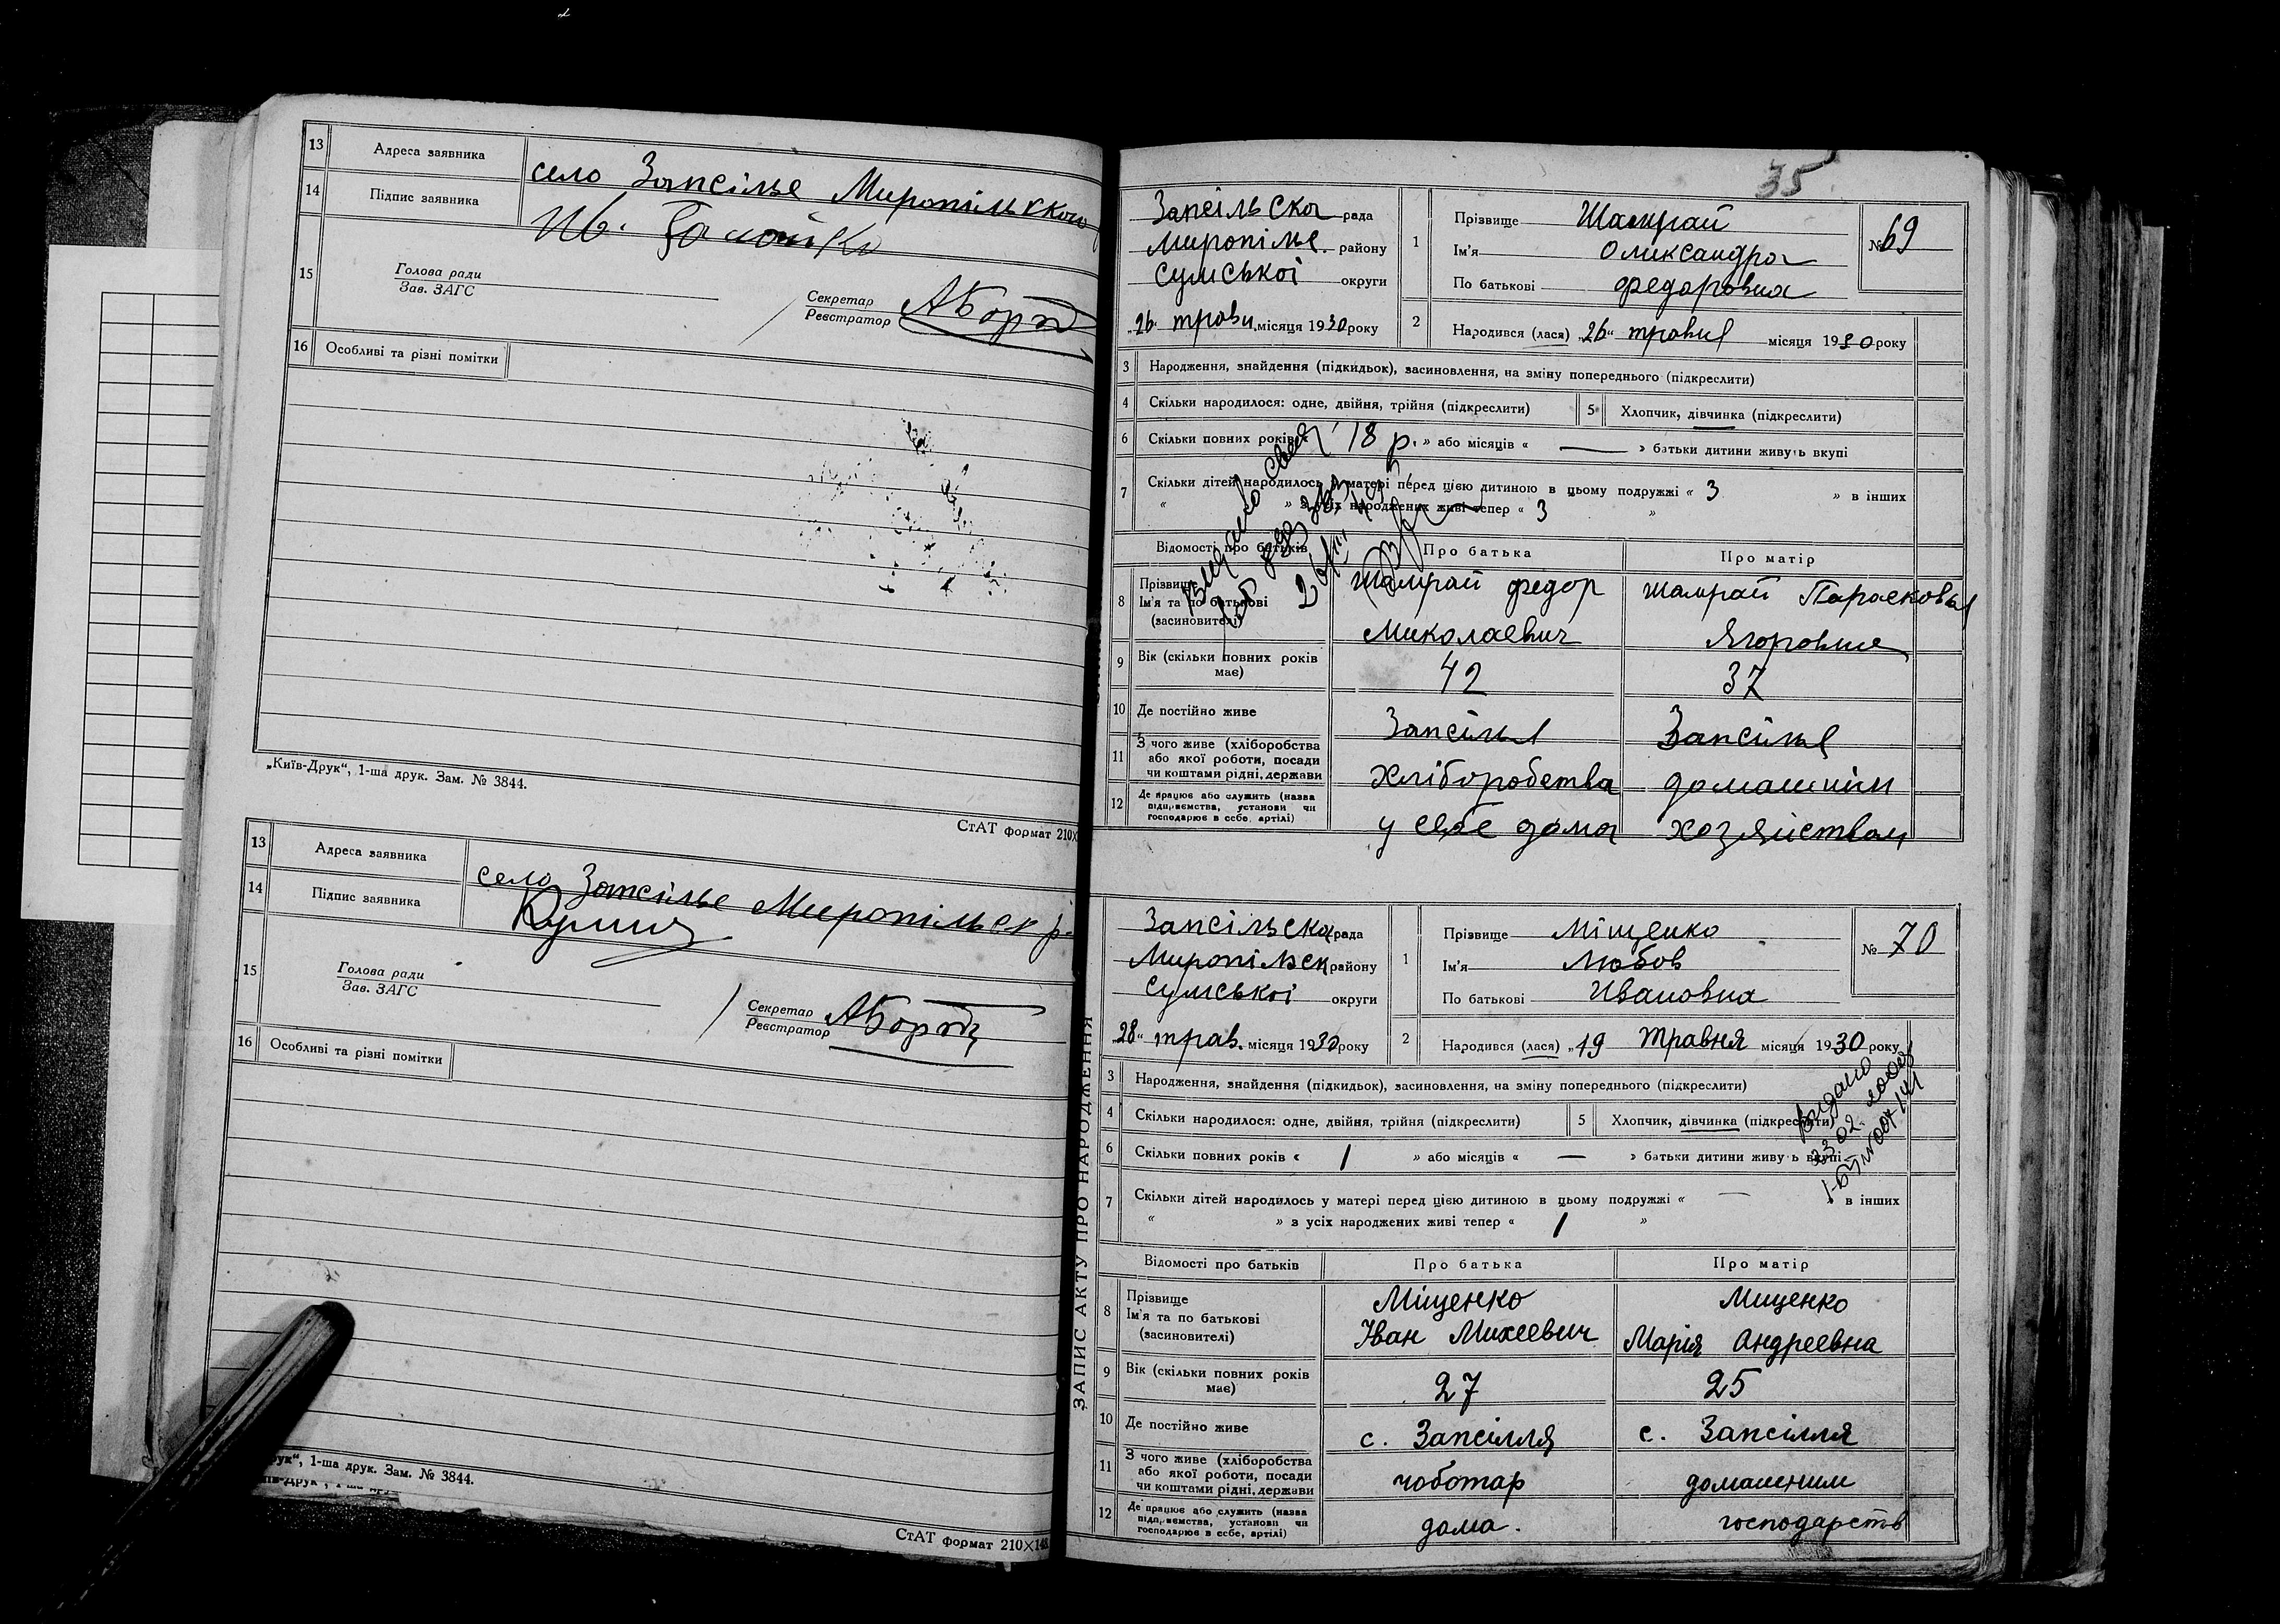 13 Адреса заявника село Запсілье Миропільского
14 Підпис заявника
15 Голова ради
Зав. ЗАГС
Секретар
Реєстратор
16 Особливі та різні помітки
„Київ-Друк“, 1-ша друк. Зам. № 3844.
СтАТ формат 210×
13 Адреса заявника село Запсілье Миропільск р.
14 Підпис заявника
15 Голова ради
Зав. ЗАГС
Секретар
Реєстратор
16 Особливі та різні помітки
рук“, 1-ша друк. Зам. № 3844.
СтАТ формат 210×148
35
Запсільска рада
Миропілье. району
Сумської округи
„26“ травн. місяця 1930 року
1 Прізвище Шамрай
Ім'я Олександра
По батькові Федоровна
№ 69
2 Народився (лася) „26“ травня місяця 1930 року
3 Народження, знайдення (підкидьок), засиновлення, на зміну попереднього (підкреслити)
4 Скільки народилося: одне, двійня, трійня (підкреслити) 5 Хлопчик, дівчинка (підкреслити)
6 Скільки повних років « 18 р. » або місяців « — » батьки дитини живуть вкупі
7 Скільки дітей народилось у матері перед цією дитиною в цьому подружжі « 3 » в інших
« » з усіх народжених живі тепер « 3 »
Відомості про батьків Про батька Про матір
8 Прізвище
Ім'я та по батькові
(засиновителі)
Шамрай Федор
Миколаевич
Шамрай Парасковья
Ягоровна
9 Вік (скільки повних років
має)
42 37
10 Де постійно живе Запсілье Запсілье
11 З чого живе (хліборобства
або якої роботи, посади
чи коштами рідні, держави
хліборобства домашнім
12 Де працює або служить (назва
підприємства, установи чи
господарює в себе, артілі)
у себе дома хозяйством
ЗАПИС АКТУ ПРО НАРОДЖЕННЯ
Запсільска рада
Миропільск району
Сумської округи
„28“ трав. місяця 1930 року
1 Прізвище Міщенко
Ім'я Любов
По батькові Ивановна
№ 70
2 Народився (лася) „19 Травня місяця 1930 року
3 Народження, знайдення (підкидьок), засиновлення, на зміну попереднього (підкреслити)
4 Скільки народилося: одне, двійня, трійня (підкреслити) 5 Хлопчик, дівчинка (підкреслити)
6 Скільки повних років « 1 » або місяців « — » батьки дитини живуть вкупі
7 Скільки дітей народилось у матері перед цією дитиною в цьому подружжі « — в інших
« » з усіх народжених живі тепер « 1 »
Видано
23.02.
Відомості про батьків Про батька Про матір
8 Прізвище
Ім'я та по батькові
(засиновителі)
Міщенко
Іван Михеевич
Мищенко
Марія Андреевна
9 Вік (скільки повних років
має)
27 25
10 Де постійно живе с. Запсілля с. Запсілля
11 З чого живе (хліборобства
або якої роботи, посади
чи коштами рідні, держави
чоботар домашним
12 Де працює або служить (назва
підприємства, установи чи
господарює в себе, артілі)
дома. господарств